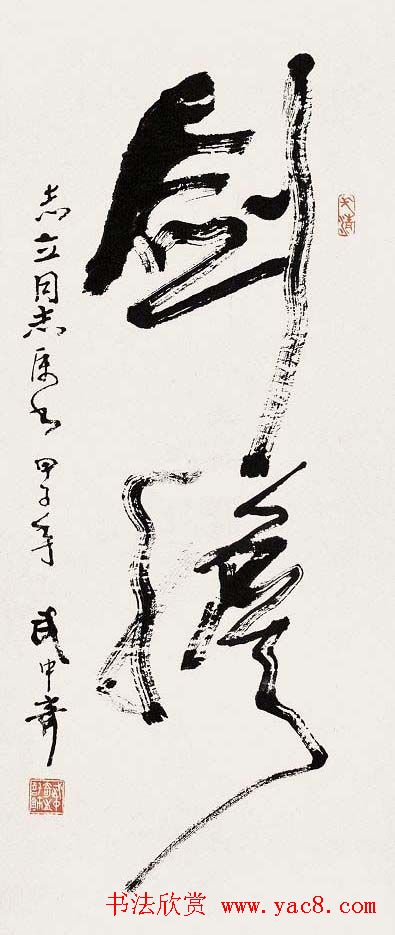 劍膽
志立同志属书 甲子年 武中奇
书法欣赏 www.yac8.com